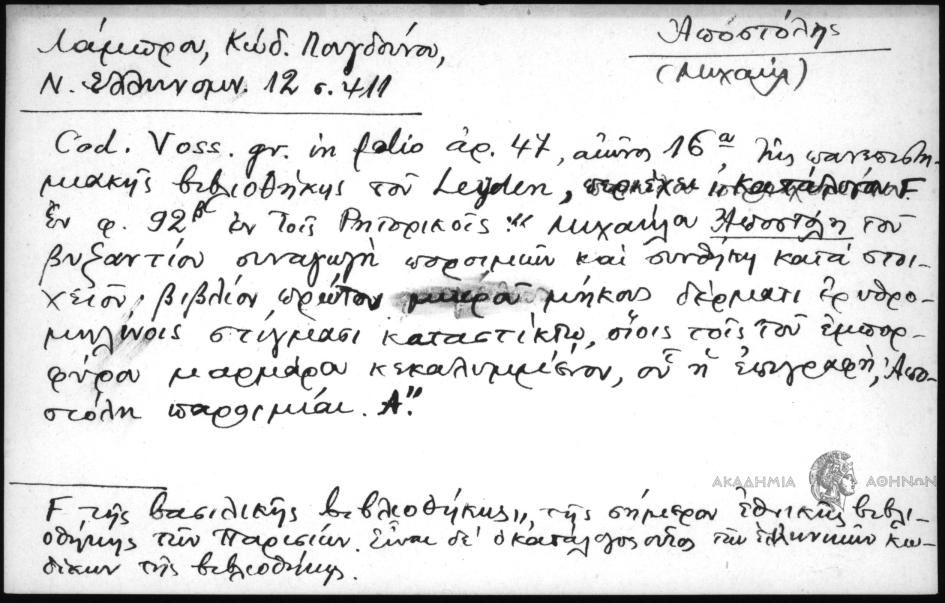 Λάμπρου, Κώδ. Πουγδούνου,
Ν. Ἑλληνομν. 12 σ. 411
Ἀποστόλης
(Μιχαὴλ)
Cod. Voss. gr. in folio ἀρ. 47, αἰῶνος 16ου, τῆς πανεπιστη-
μιακῆς βιβλιοθήκης τοῦ Leyden, περιέχει κατάλογον F
ἐν φ. 92β ἐν τοῖς Ρητορικοῖς: "Μιχαήλου Ἀποστόλη τοῦ
βυζαντίου συναγωγὴ παροιμιῶν καὶ συνθήκη κατὰ στοι-
χεῖον, βιβλίον πρῶτον μικροῦ μήκους δέρματι ἐρυθρο-
μηλίνοις στίγμασι καταστίκτῳ, οἵοις τοῖς τοῦ ἐμπορ-
φύρου μαρμάρου κεκαλυμμένον, οὗ ἡ ἐπιγραφή, Ἀπο-
στόλη παροιμίαι. Α".
ΑΚΑΔΗΜΙΑ ΑΘΗΝΩΝ
F τῆς βασιλικῆς βιβλιοθήκης", τῆς σήμερον ἐθνικῆς βιβλι-
οθήκης τῶν Παρισίων. Εἶναι δὲ ὁ κατάλογος οὗτος τῶν ἑλληνικῶν κω-
δίκων τῆς βιβλιοθήκης.